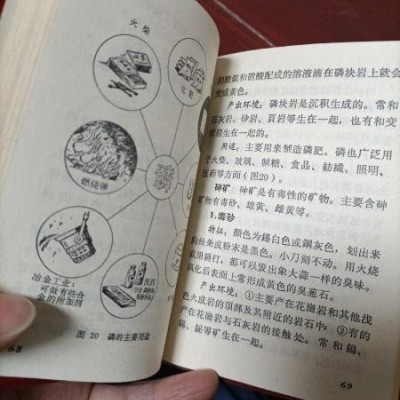 火柴
化肥
磷
燃烧弹
医药
冶金工业:
可做有些合
金的附加剂
图 20 磷的主要用途
68
酸铵和硝酸配成的溶液滴在磷块岩上就会
变成黄色。
产出环境:磷块岩是沉积生成的。常和
石灰岩、砂岩、頁岩等生在一起,也有和变
岩生在一起的。
用途:主要用来制造磷肥。磷也广泛用
于火柴、玻璃、制糖、食品、紡織、照明、
医药等方面(图20)。
砷矿 砷矿是有毒性的矿物。主要含砷
矿物有毒砂、雄黃、雌黃等。
1.毒砂
特征:顏色为錫白色或鋼灰色,划出来
的条末或粉末是黑色。小刀刻不动。用火烧
或用錘打,都可以发出象大蒜一样的臭味。
风化后表面上常形成黃色的臭葱石。
产出环境:①主要产在花崗岩和其他浅
色火成岩的頂部及其附近的岩石中;②有的
产在花崗岩与石灰岩的接触处。常和鎢、
錫、鉈等矿生在一起。
69